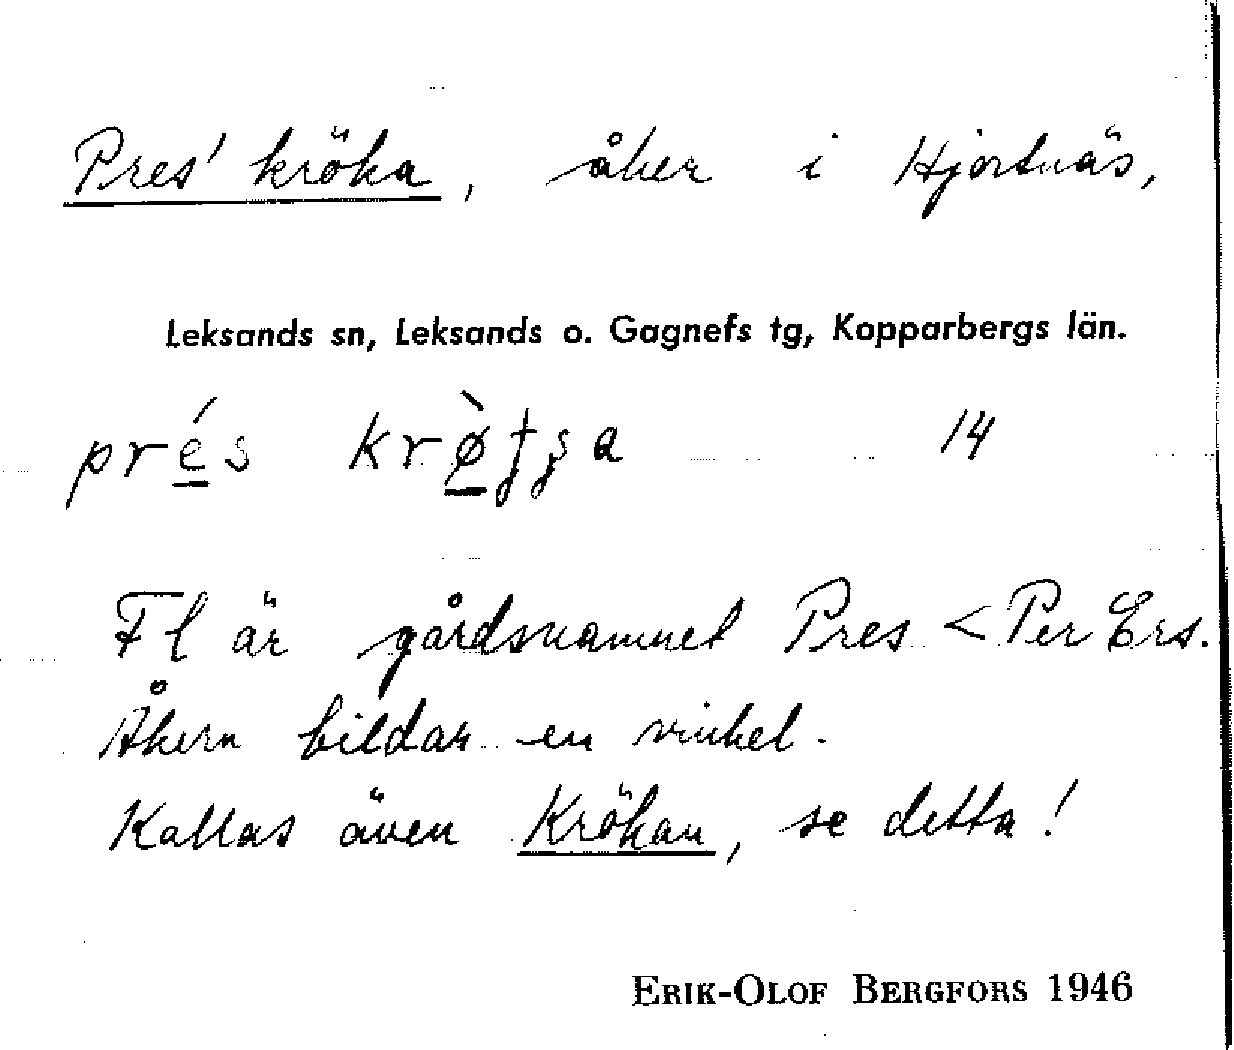 Pres' kröka, åker i Hjortnäs,
Leksands sn, Leksands o. Gagnefs tg, Kopparbergs län.
prés 14
Fl är gårdsnamnet Pres < Per Ers.
Åkern bildar en vinkel.
Kallas även Krökan, se detta!
ERIK-OLOF BERGFORS 1946